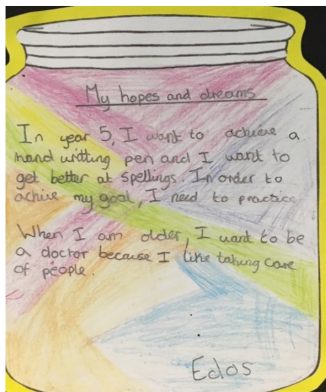 My hopes and dreams
In year 5, I want to achieve a
hand writting pen and I want to
get better at spellings. In order to
achive my goal, I need to practice
When I am older, I want to be
a doctor because I like taking care
of people.
Edos